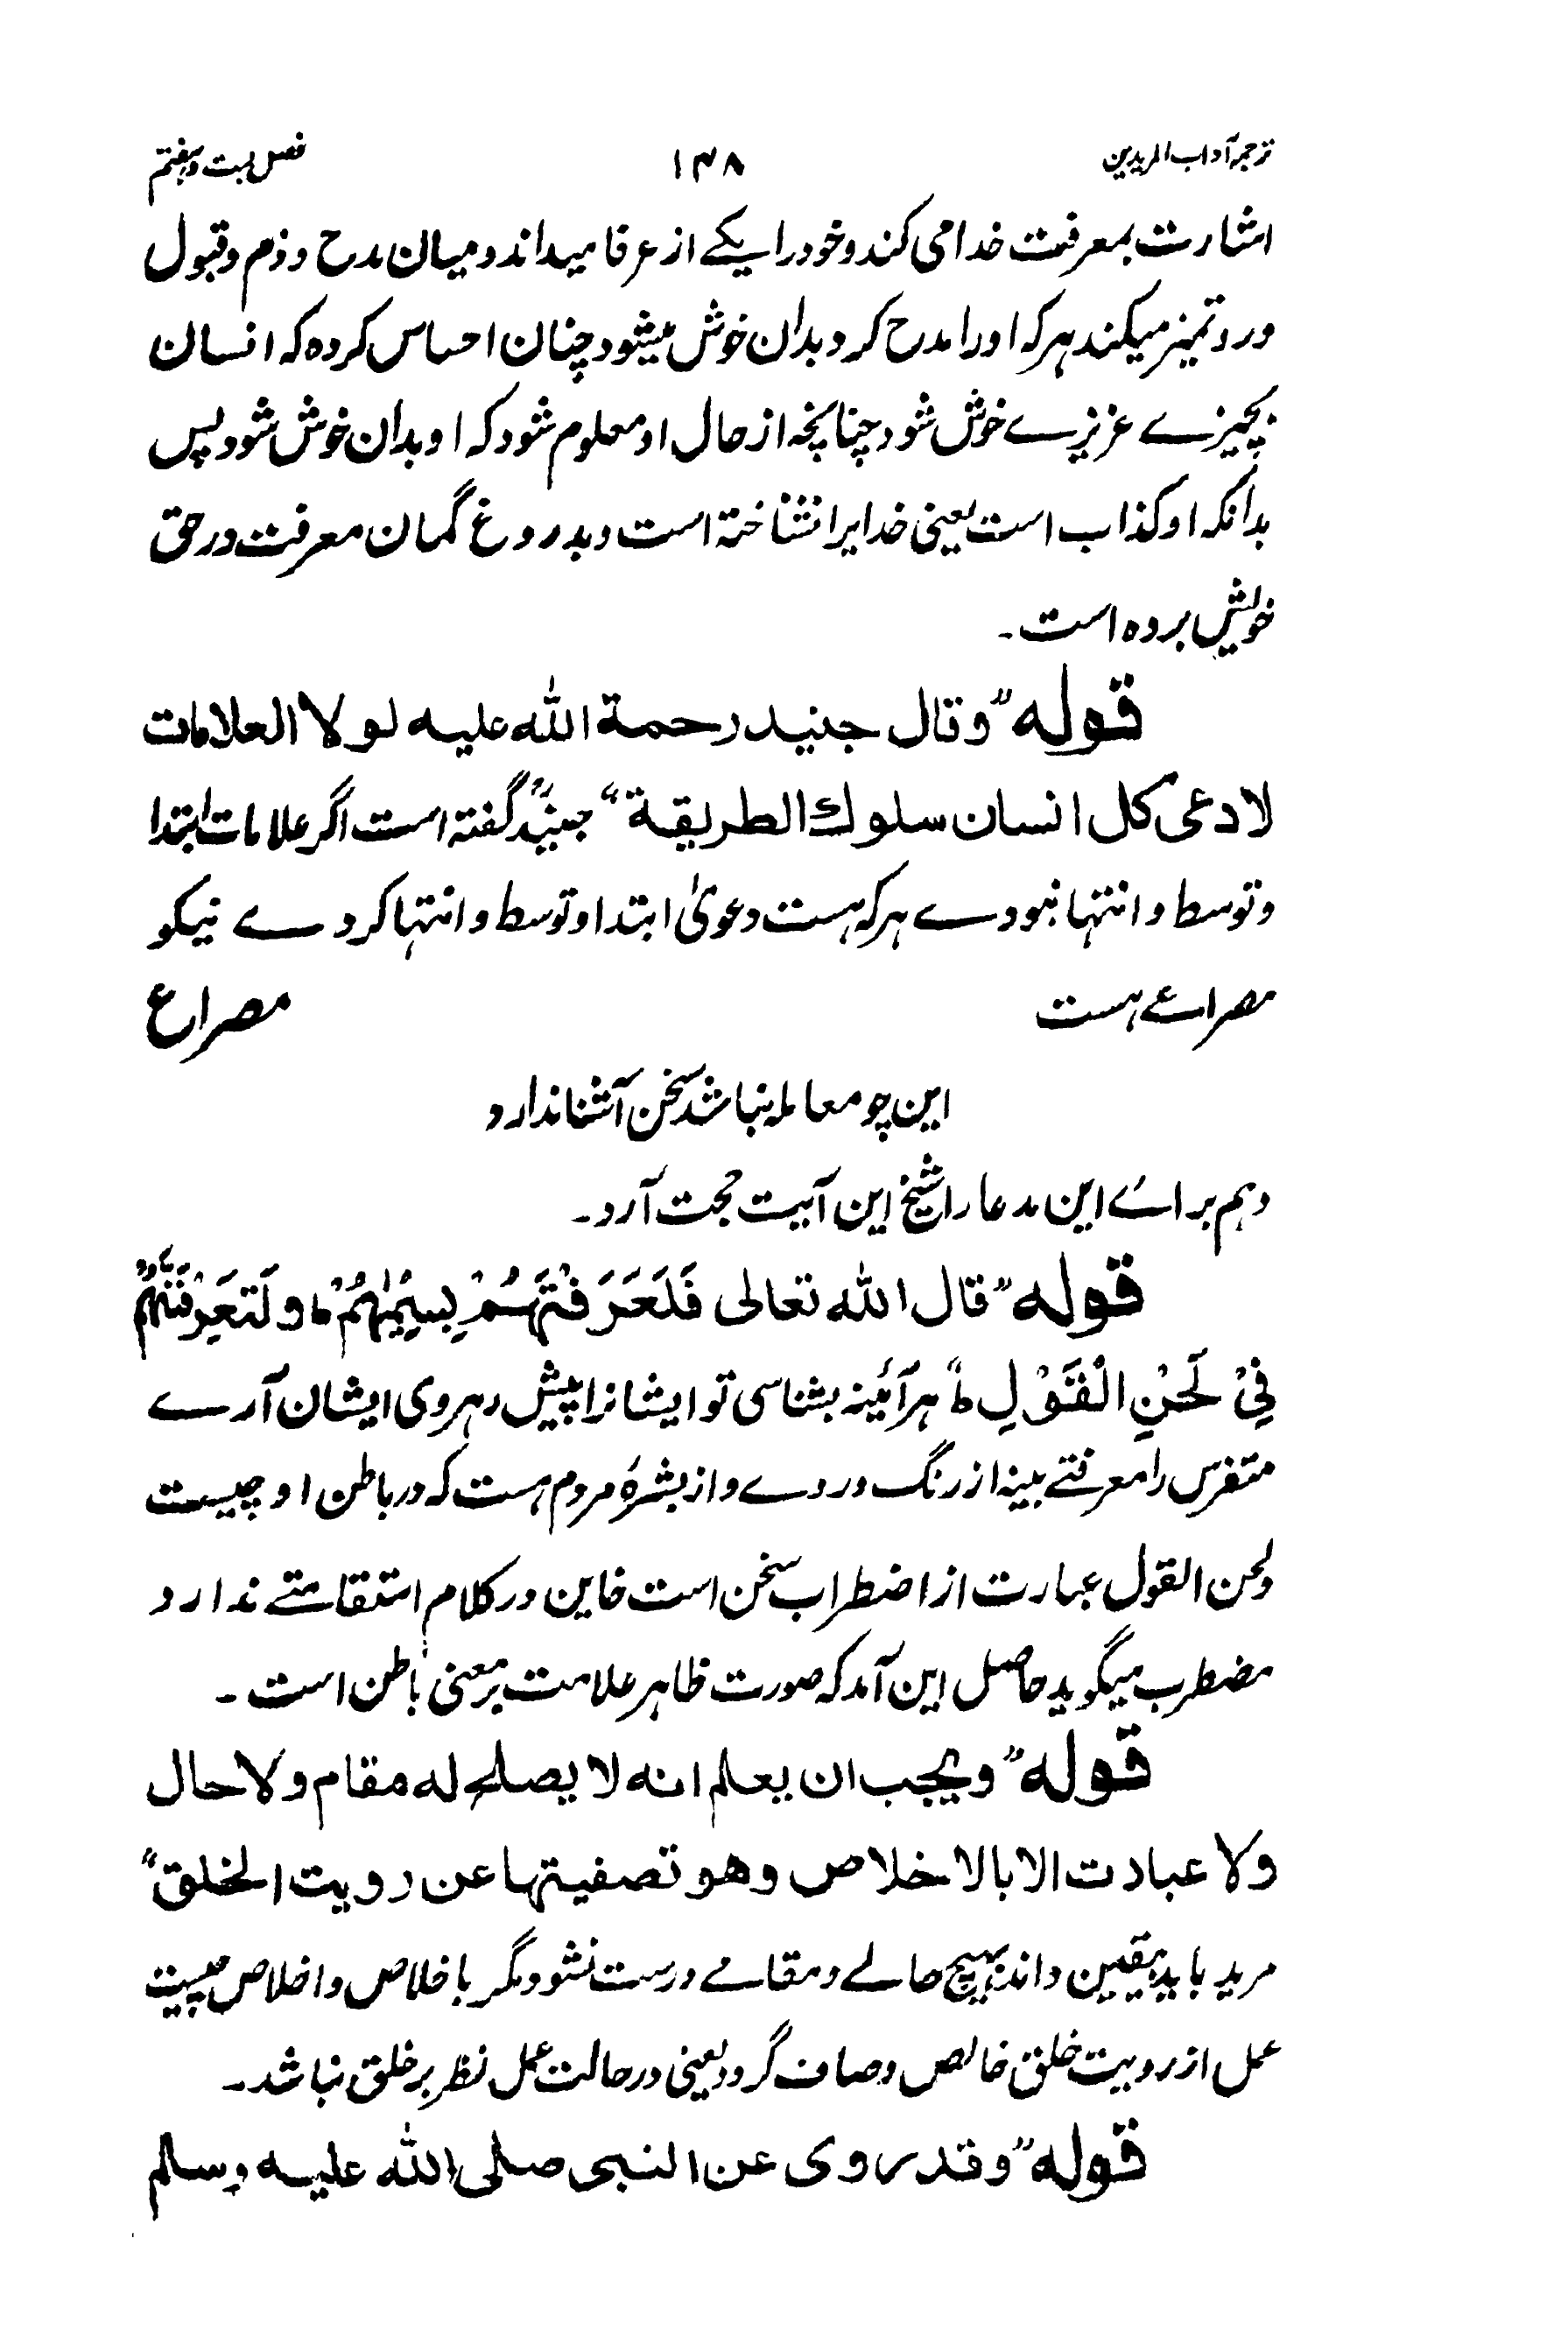 ترجمہ آداب المریدین ۱۴۸ فصل بست و ہفتم
اشارت بمعرفت خدا می کند و خود را یکے از عرفا میداند و میان مدح و ذم و قبول
و رد تمیز میکند ہر کہ اورا مدح کرد بدان خوش میشود چنان احساس کردہ کہ انسان
بچیزے عزیزے خوش شود چنانچہ از حال او معلوم شود کہ او بدان خوش شود پس
بدانکہ او کذاب است یعنی خدایرا نشناختہ است و بدروغ گمان معرفت در حق
خویش بردہ است۔
قوله ”وقال جنید رحمة الله علیه لولا العلامات
لادعی کل انسان سلوك الطریقة“ جنیدؒ گفتہ است اگر علامات ابتدا
و توسط و انتہا نبودے ہر کہ ہست دعویٰ ابتدا و توسط و انتہا کردے نیکو
مصراعے ہست مصراع
این چو معاملہ نباشد سخن آشنا ندارد
وہم برائے این مدعا را شیخ این آیت حُجت آرد۔
قوله ”قال الله تعالی فَلَعَرَفْتَهُمْ بِسِیْمٰهُمْ ؕ و لَتَعْرِفَنَّهُمْ
فِیْ لَحْنِ الْقَوْلِ ؕ“ ہر آئینہ بشناسی تو ایشانرا پیش رہروی ایشان آرے
متفرس را معرفتے بینہ از رنگ و روے و از بشرۂ مردم ہست کہ در باطن او چیست
و لحن القول عبارت از اضطراب سخن است خاین در کلام استقامتے ندارد
مضطرب میگوید حاصل این آمد کہ صورت ظاہر علامت بر معنی باطن است۔
قوله ”ویجب ان یعلم انه لا یصلح له مقام ولا حال
ولا عبادت الا بالاخلاص وهو تصفیتها عن رویت الخلق“
مرید باید بیقین داند ہیچ حالے و مقامے درست نشود مگر باخلاص و اخلاص چیست
عمل از رویت خلق خالص و صاف گرود یعنی در حالت عمل نظرِ بر خلق نباشد۔
قوله ”وقد روی عن النبی صلی الله علیه وسلم